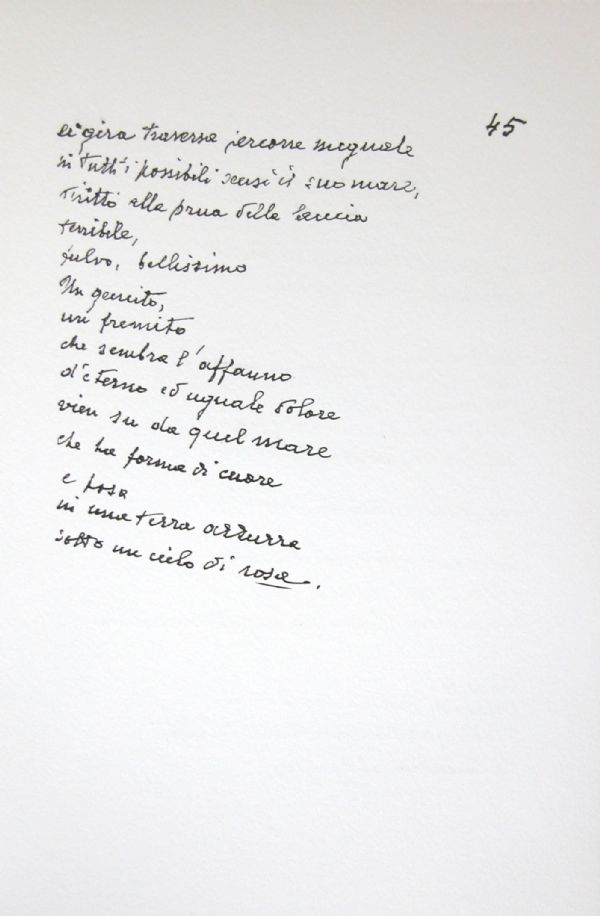 45
si gira traversa percorre ineguale
in tutti i possibili sensi il suo mare,
diritto alla prua della lancia
terribile,
fulvo, bellissimo
Un gemito,
un fremito
che sembra l'affanno
d'eterno ed uguale dolore
vien su da quel mare
che ha forma di cuore
e posa
in una terra azzurra
sotto un cielo di rosa.